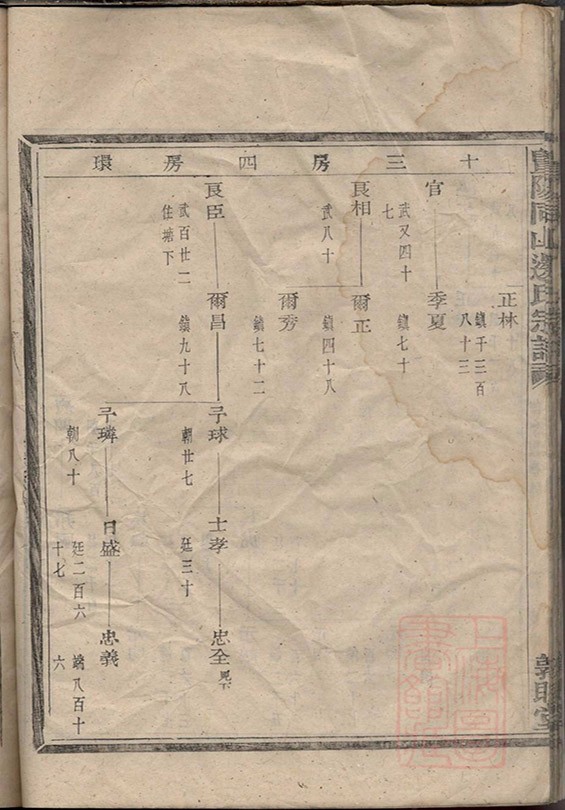 暨陽同山邊氏宗譜
敦睦堂
十三房四房環
正林
鎮千二百
八十三
官
武又四十
七
季夏
鎮七十
良相
武八十
爾正
鎮四十八
爾秀
鎮七十二
良臣
武百廿二
住塘下
爾昌
鎮九十八
子球
朝廿七
士孝
廷三十
忠全
見下
子璘
朝八十
日盛
廷二百六
十七
忠義
端八百十
六